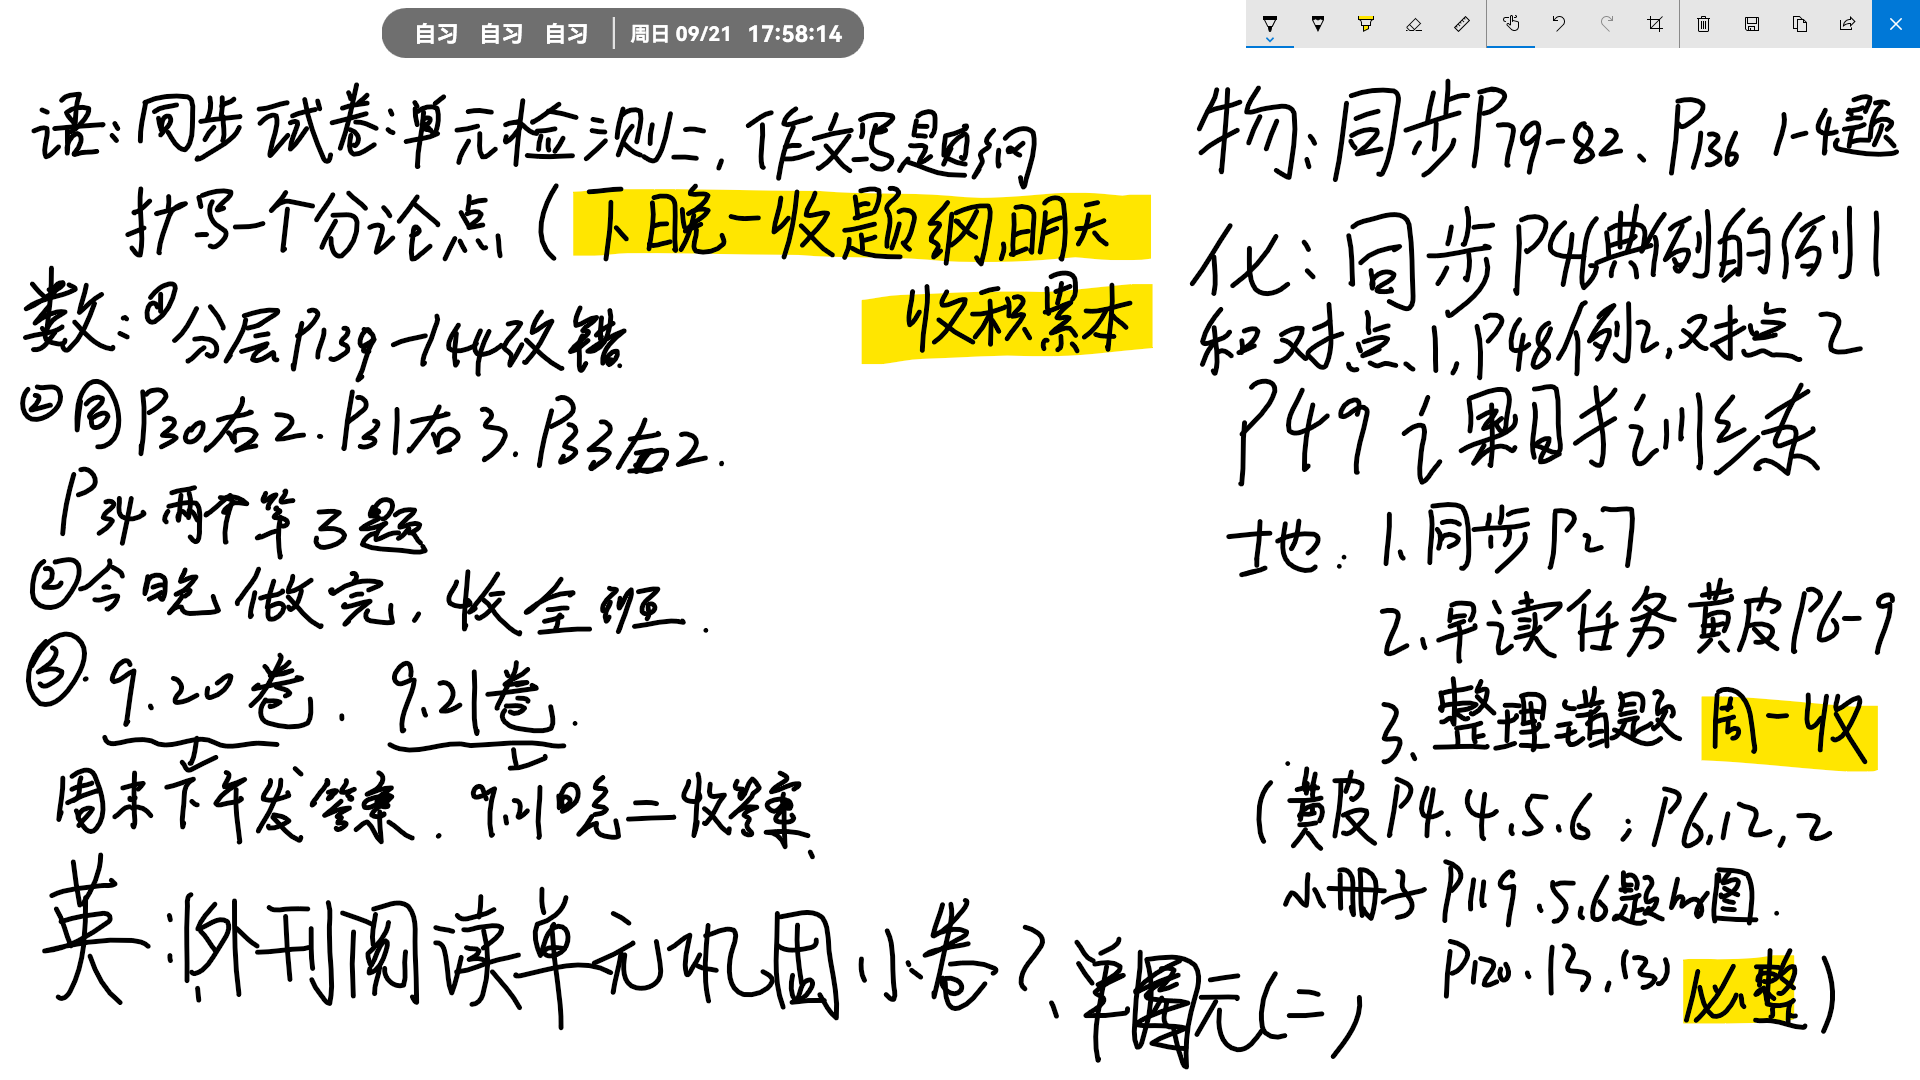 自习 自习 自习 周日 09/21 17:58:14
语:同步试卷:单元检测二,作文写题纲
抄写一个分论点(下晚一收题纲,明天
收积累本
数:①分层P139-144改错.
②同P30右2.P31右3.P33右2.
P34两个第3题
②今晚做完,收全班.
③.9.20卷.9.21卷.
周末下午发答案.9.21日晚二收答案、
英:外刊阅读单元巩固小卷2、单元(二)
物:同步P79-82、P136 1-4题
化:同步P46典例的例1
和对点、1,P48例2,对点2
P49课目标训练
地:1、同步P27
2、早读任务黄皮P6-9
3、整理错题 周一收
(黄皮P4.4,5.6;P6,12,2
小册子P119.5,6题的图.
P120.13,(3) 必整)